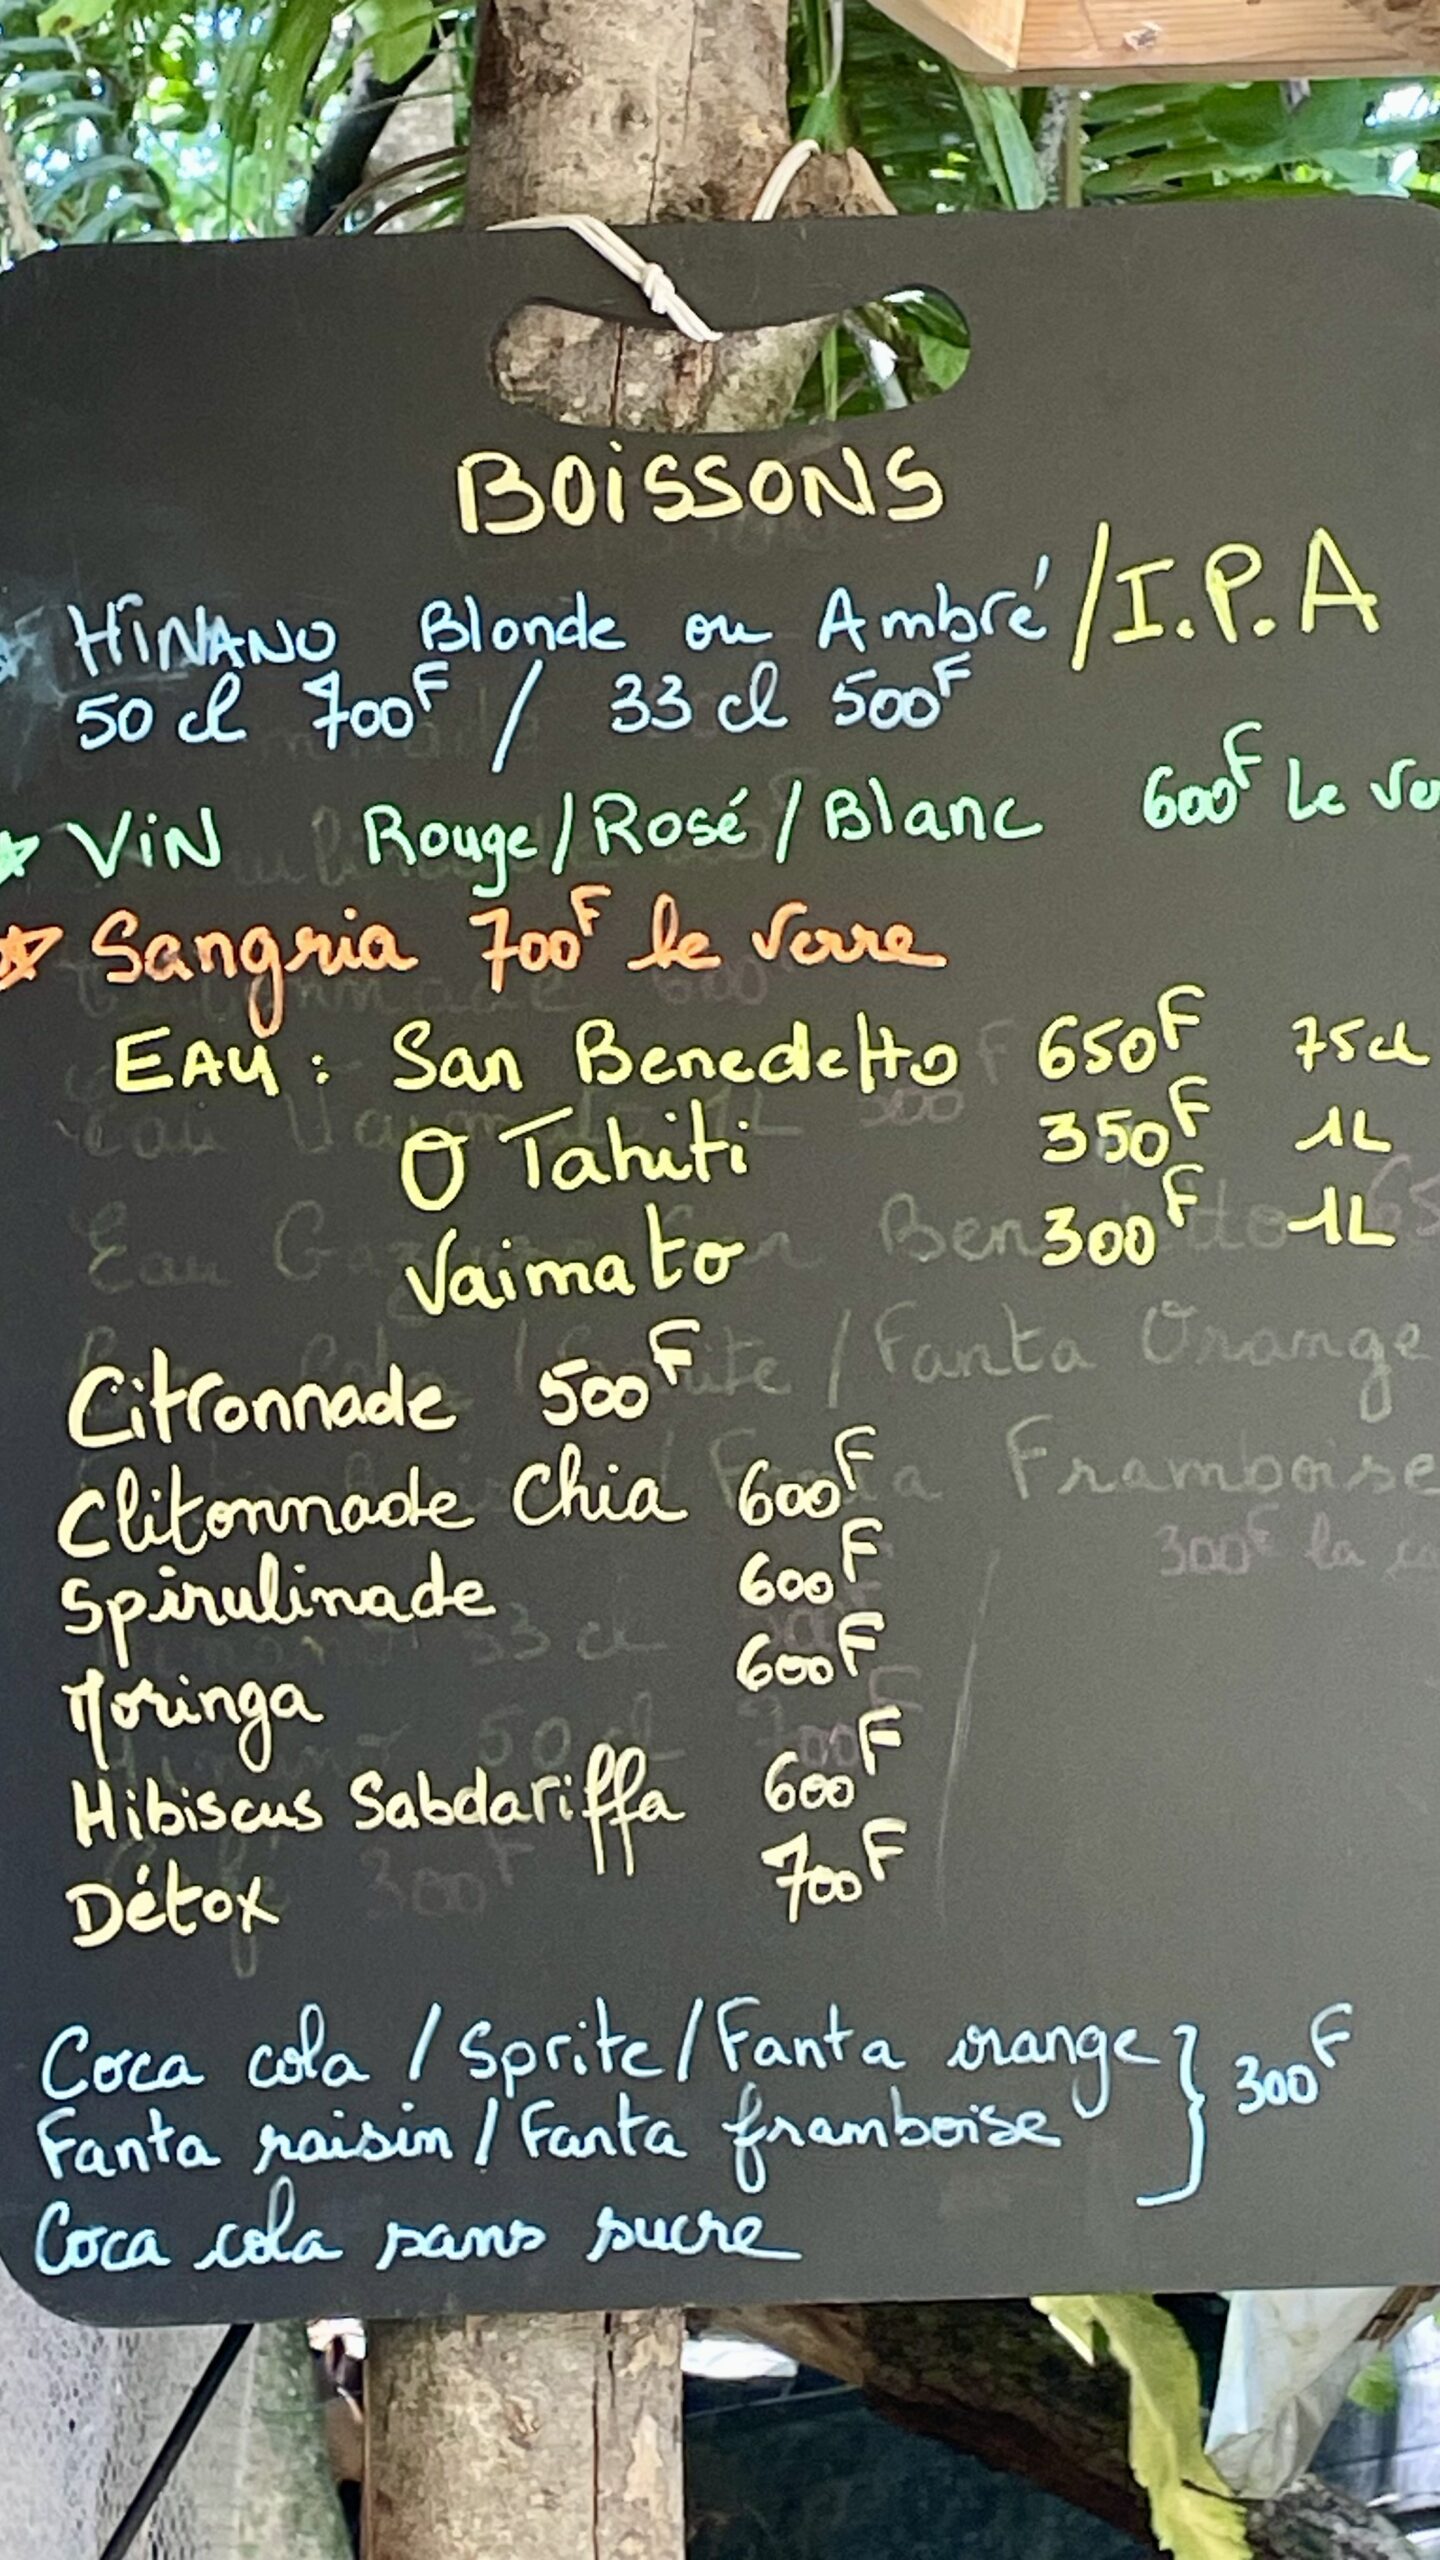 BOISSONS
HINANO Blonde ou Ambré / I.P.A
50 cl 700F / 33 cl 500F
VIN Rouge / Rosé / Blanc 600F Le
Sangria 700F le verre
EAU : San Benedetto 650F 75cl
O Tahiti 350F 1L
Vaimato 300F 1L
Citronnade 500F
Clitonnade Chia 600F
Spirulinade 600F
Moringa 600F
Hibiscus Sabdariffa 600F
Détox 700F
Coca cola / Sprite / Fanta orange } 300F
Fanta raisin / Fanta framboise
Coca cola sans sucre